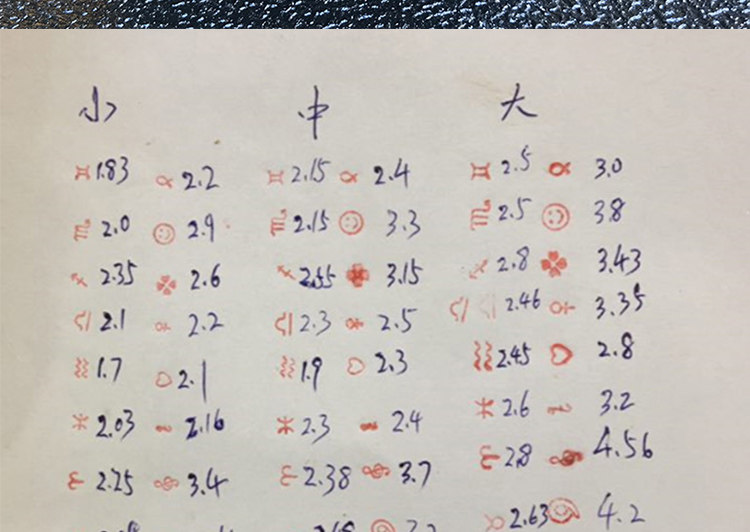 小 中 大
1.83 2.2 2.15 2.4 2.5 3.0
2.0 2.9 2.15 3.3 2.5 3.8
2.35 2.6 3.15 2.8 3.43
2.1 2.2 2.3 2.5 2.46 3.35
1.7 2.1 1.9 2.3 2.45 2.8
2.03 2.16 2.3 2.4 2.6 3.2
2.25 3.4 2.38 3.7 2.8 4.56
2.63 4.2